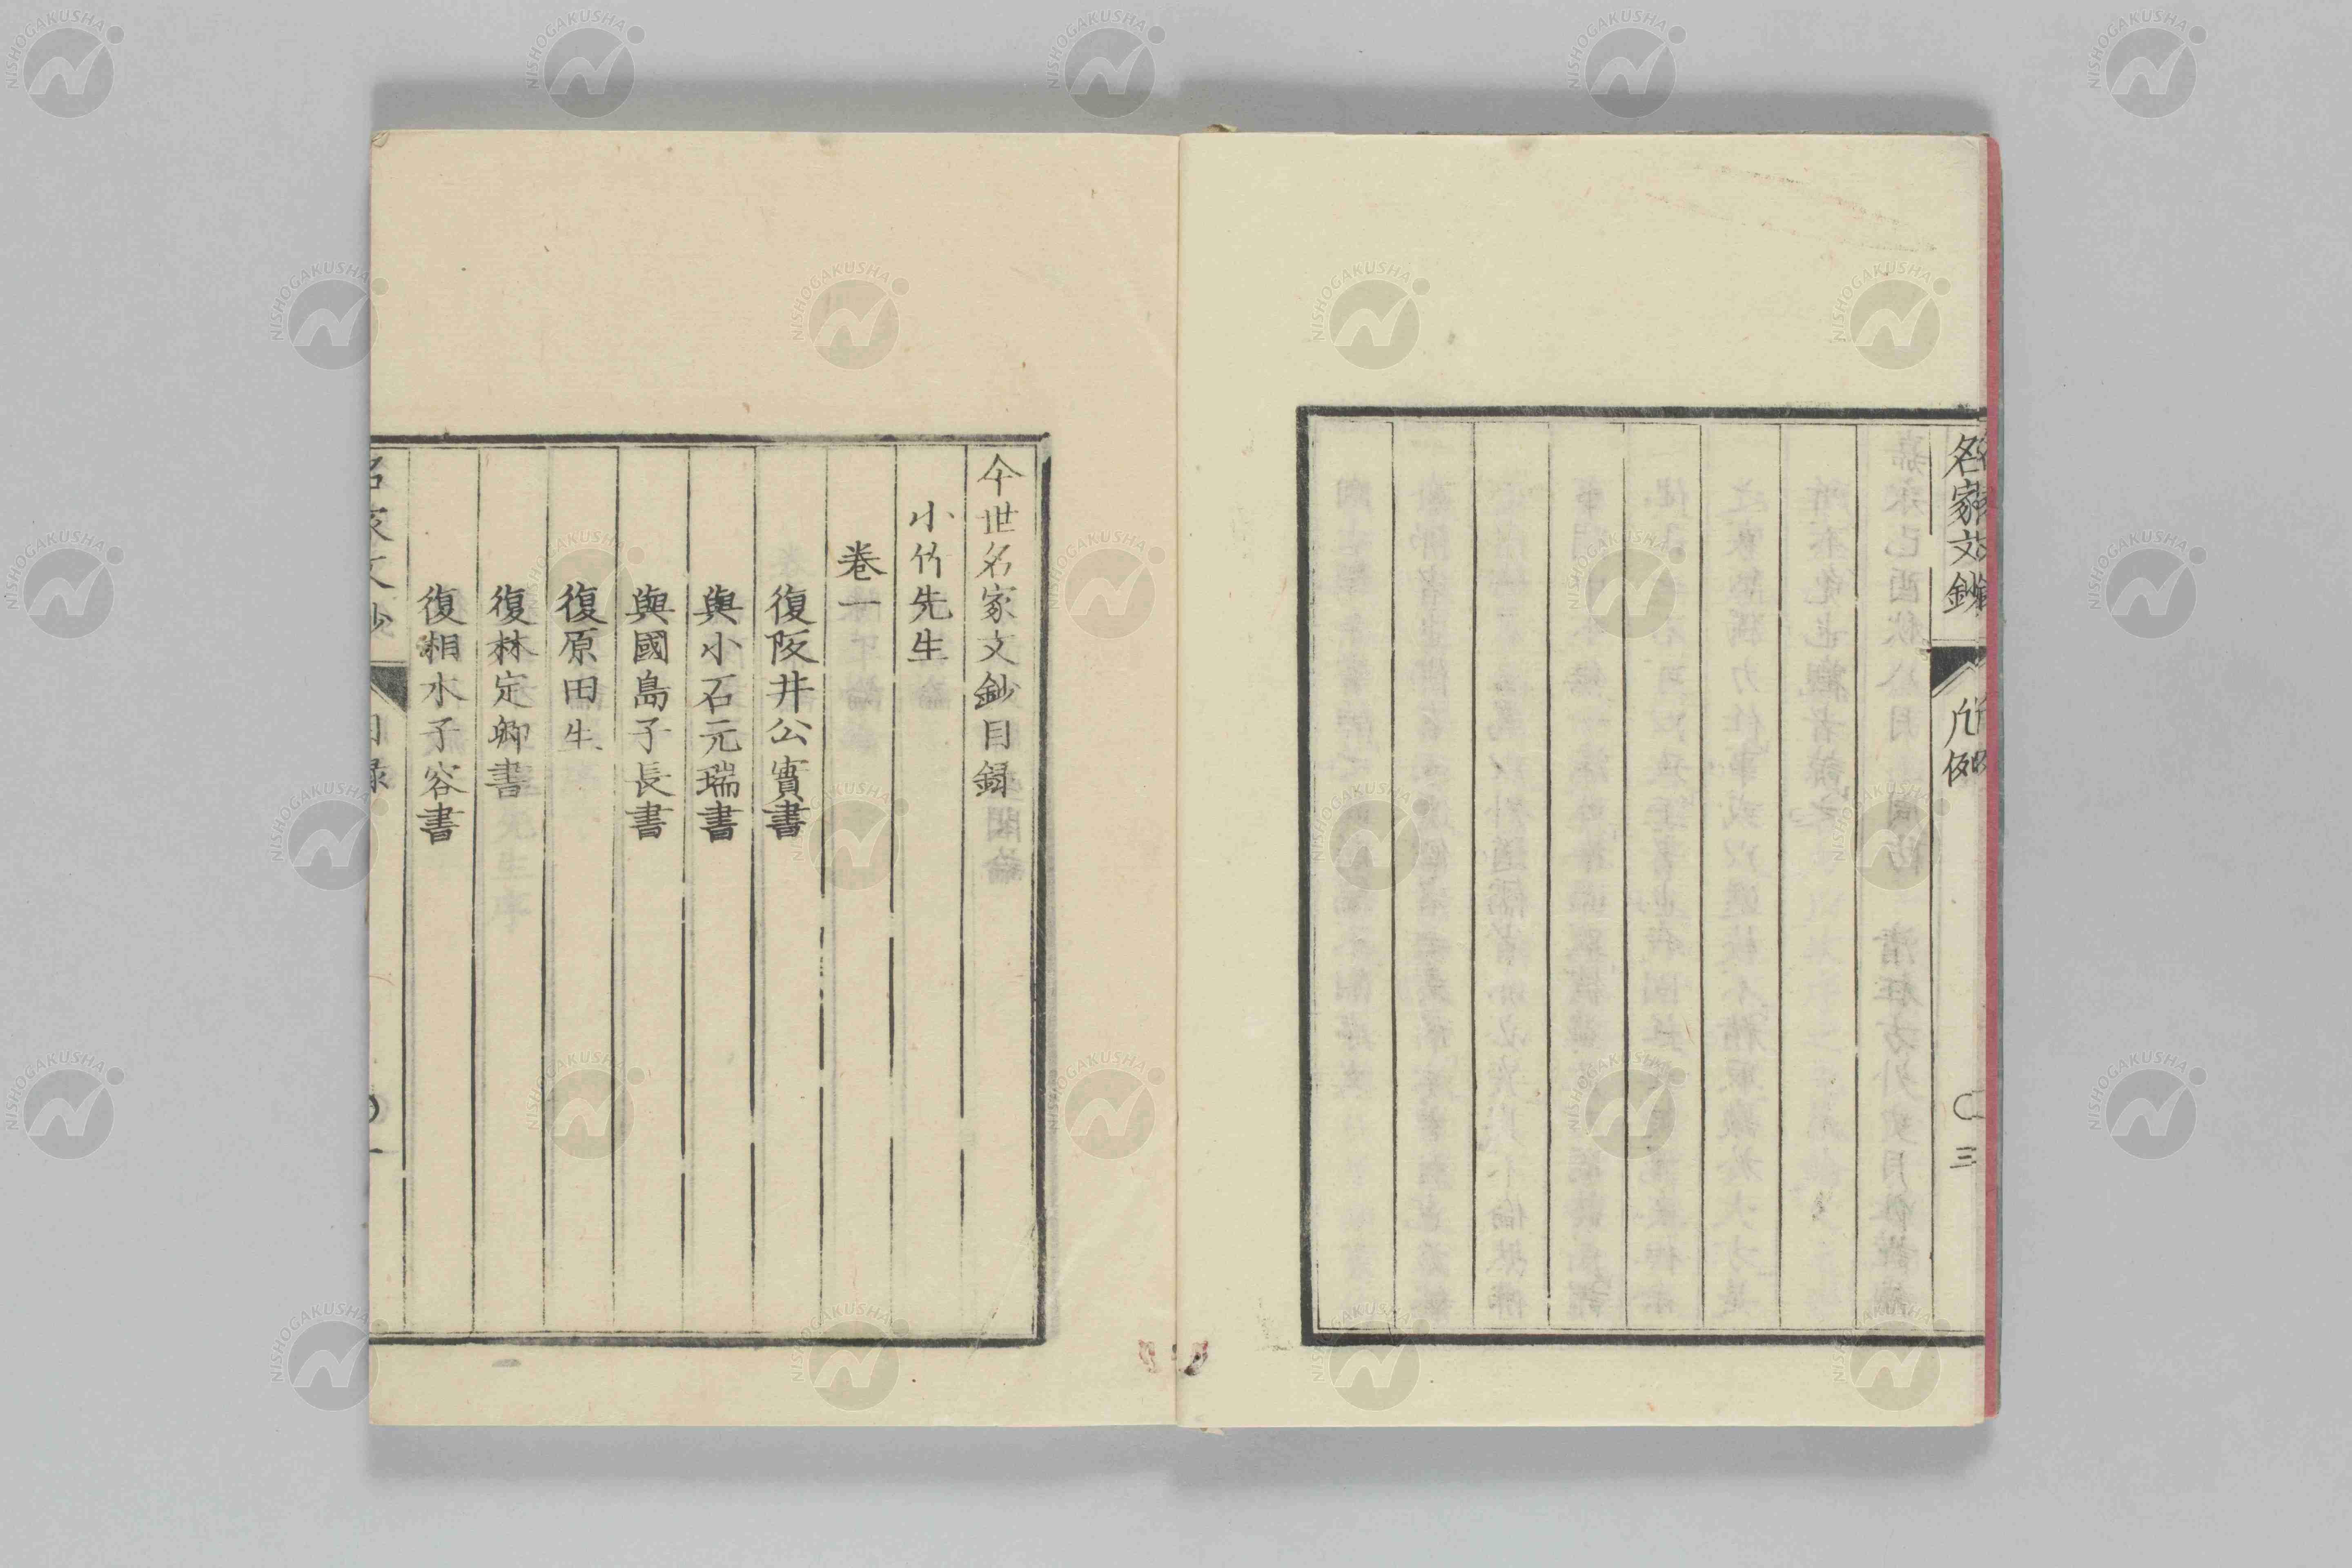 名家文鈔
凡例
三
今世名家文鈔目録
小竹先生
卷一
復阪井公實書
與小石元瑞書
與國島子長書
復原田生
復林定卿書
復相水子容書
名家文鈔
目録
一
NISHOGAKUSHA